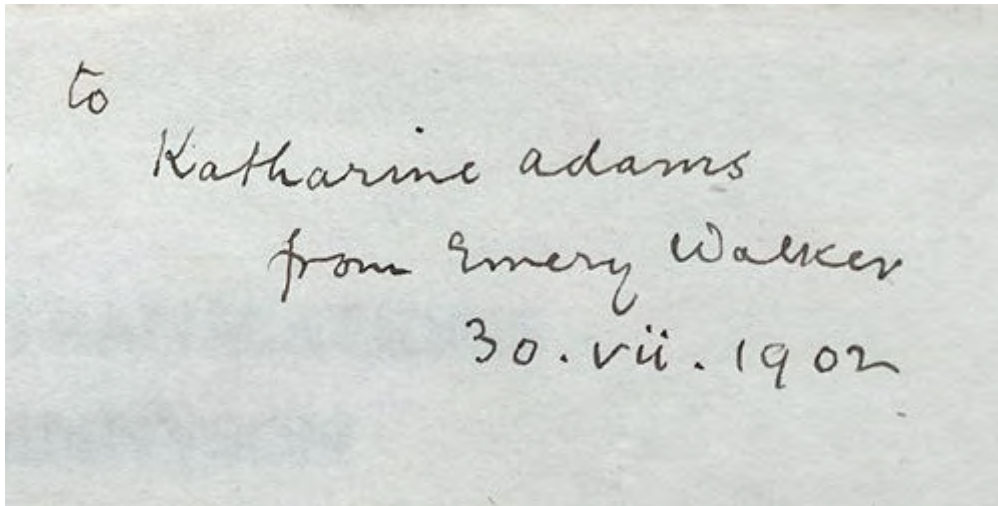 to
Katharine adams
from Emery Walker
30.vii.1902